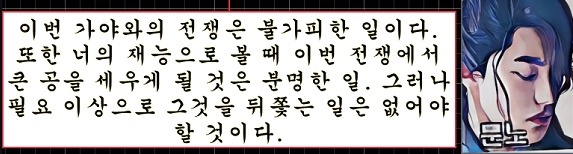 이번 가야와의 전쟁은 불가피한 일이다.
또한 너의 재능으로 볼 때 이번 전쟁에서
큰 공을 세우게 될 것은 분명한 일. 그러나
필요 이상으로 그것을 뒤쫓는 일은 없어야
할 것이다.
문노